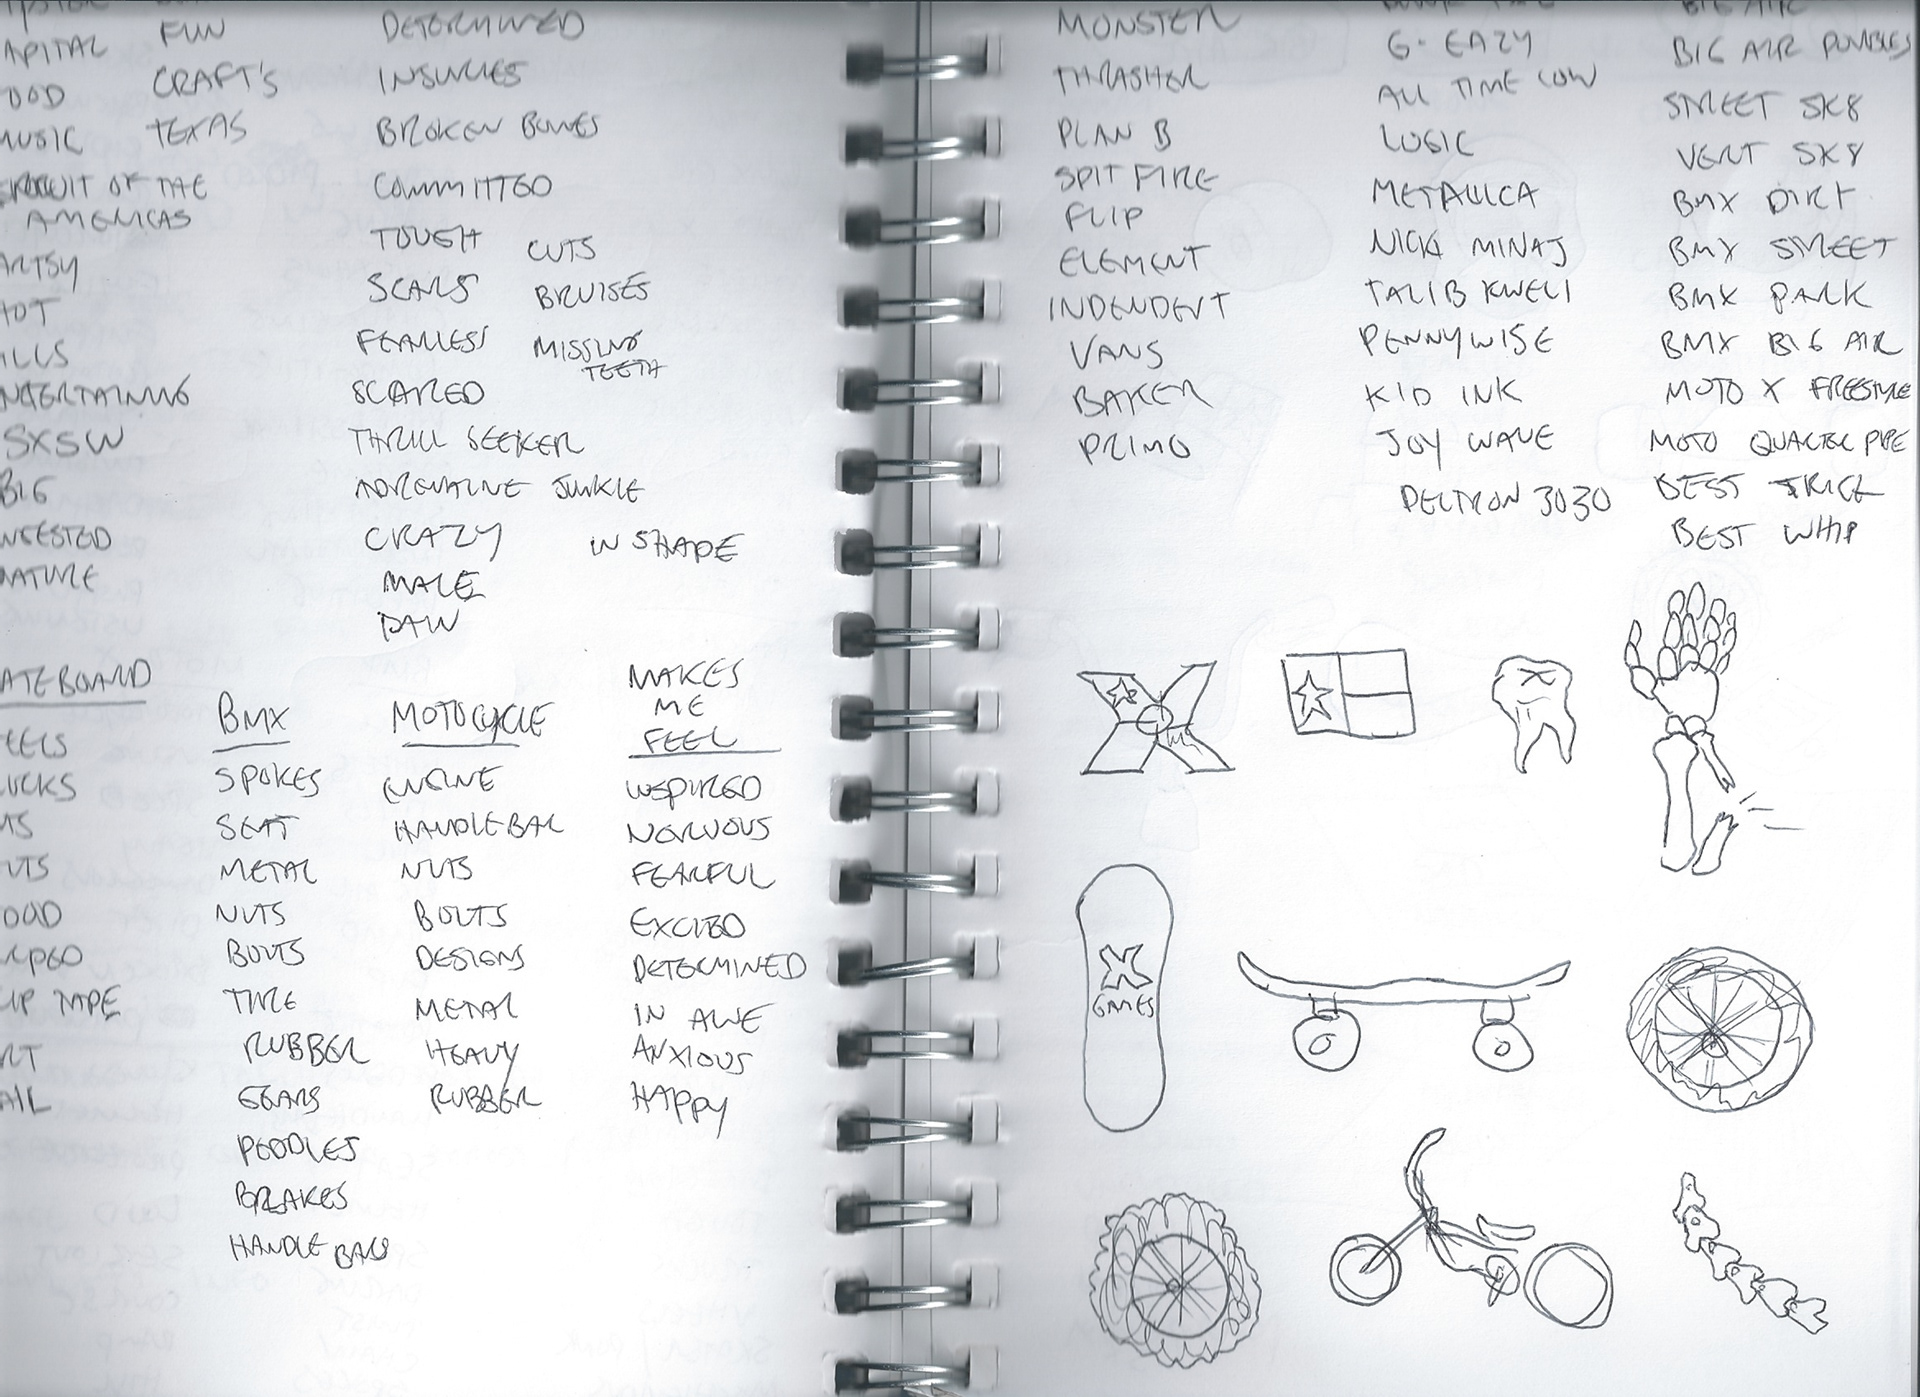 APITAL
OOD
MUSIC
OF THE
AMERICAS
ARTSY
HOT
ILLS
NTERTAINING
SXSW
BIG
NGESTED
NATURE
FUN
CRAFT'S
TEXAS
DETERMINED
INJURIES
BROKEN BONES
COMMITTED
TOUGH
SCARS
FEARLESS
SCARED
THRILL SEEKER
ADRENALINE JUNKIE
CRAZY
MALE
CUTS
BRUISES
MISSING
TEETH
IN SHAPE
ATEBOARD
EELS
UCKS
TS
UTS
OOD
RPED
IP TAPE
RT
AIL
BMX
SPOKES
SEAT
METAL
NUTS
BOLTS
TIRE
RUBBER
GEARS
PEDDLES
BRAKES
HANDLE BARS
MOTOCYCLE
ENGINE
HANDLEBAR
NUTS
BOLTS
DESIGNS
METAL
HEAVY
RUBBER
MAKES
ME
FEEL
INSPIRED
NERVOUS
FEARFUL
EXCITED
DETERMINED
IN AWE
ANXIOUS
HAPPY
MONSTER
THRASHER
PLAN B
SPIT FIRE
FLIP
ELEMENT
INDENDENT
VANS
BAKER
PRIMO
G-EAZY
ALL TIME LOW
LOGIC
METALLICA
NICKI MINAJ
TALIB KWELI
PENNYWISE
KID INK
JOY WAVE
DELTRON 3030
BIG AIR
BIG AIR DOUBLES
STREET SK8
VERT SK8
BMX DIRT
BMX STREET
BMX PARK
BMX BIG AIR
MOTO X FREESTYLE
MOTO QUARTER PIPE
BEST TRICK
BEST WHIP
X
X
GAMES